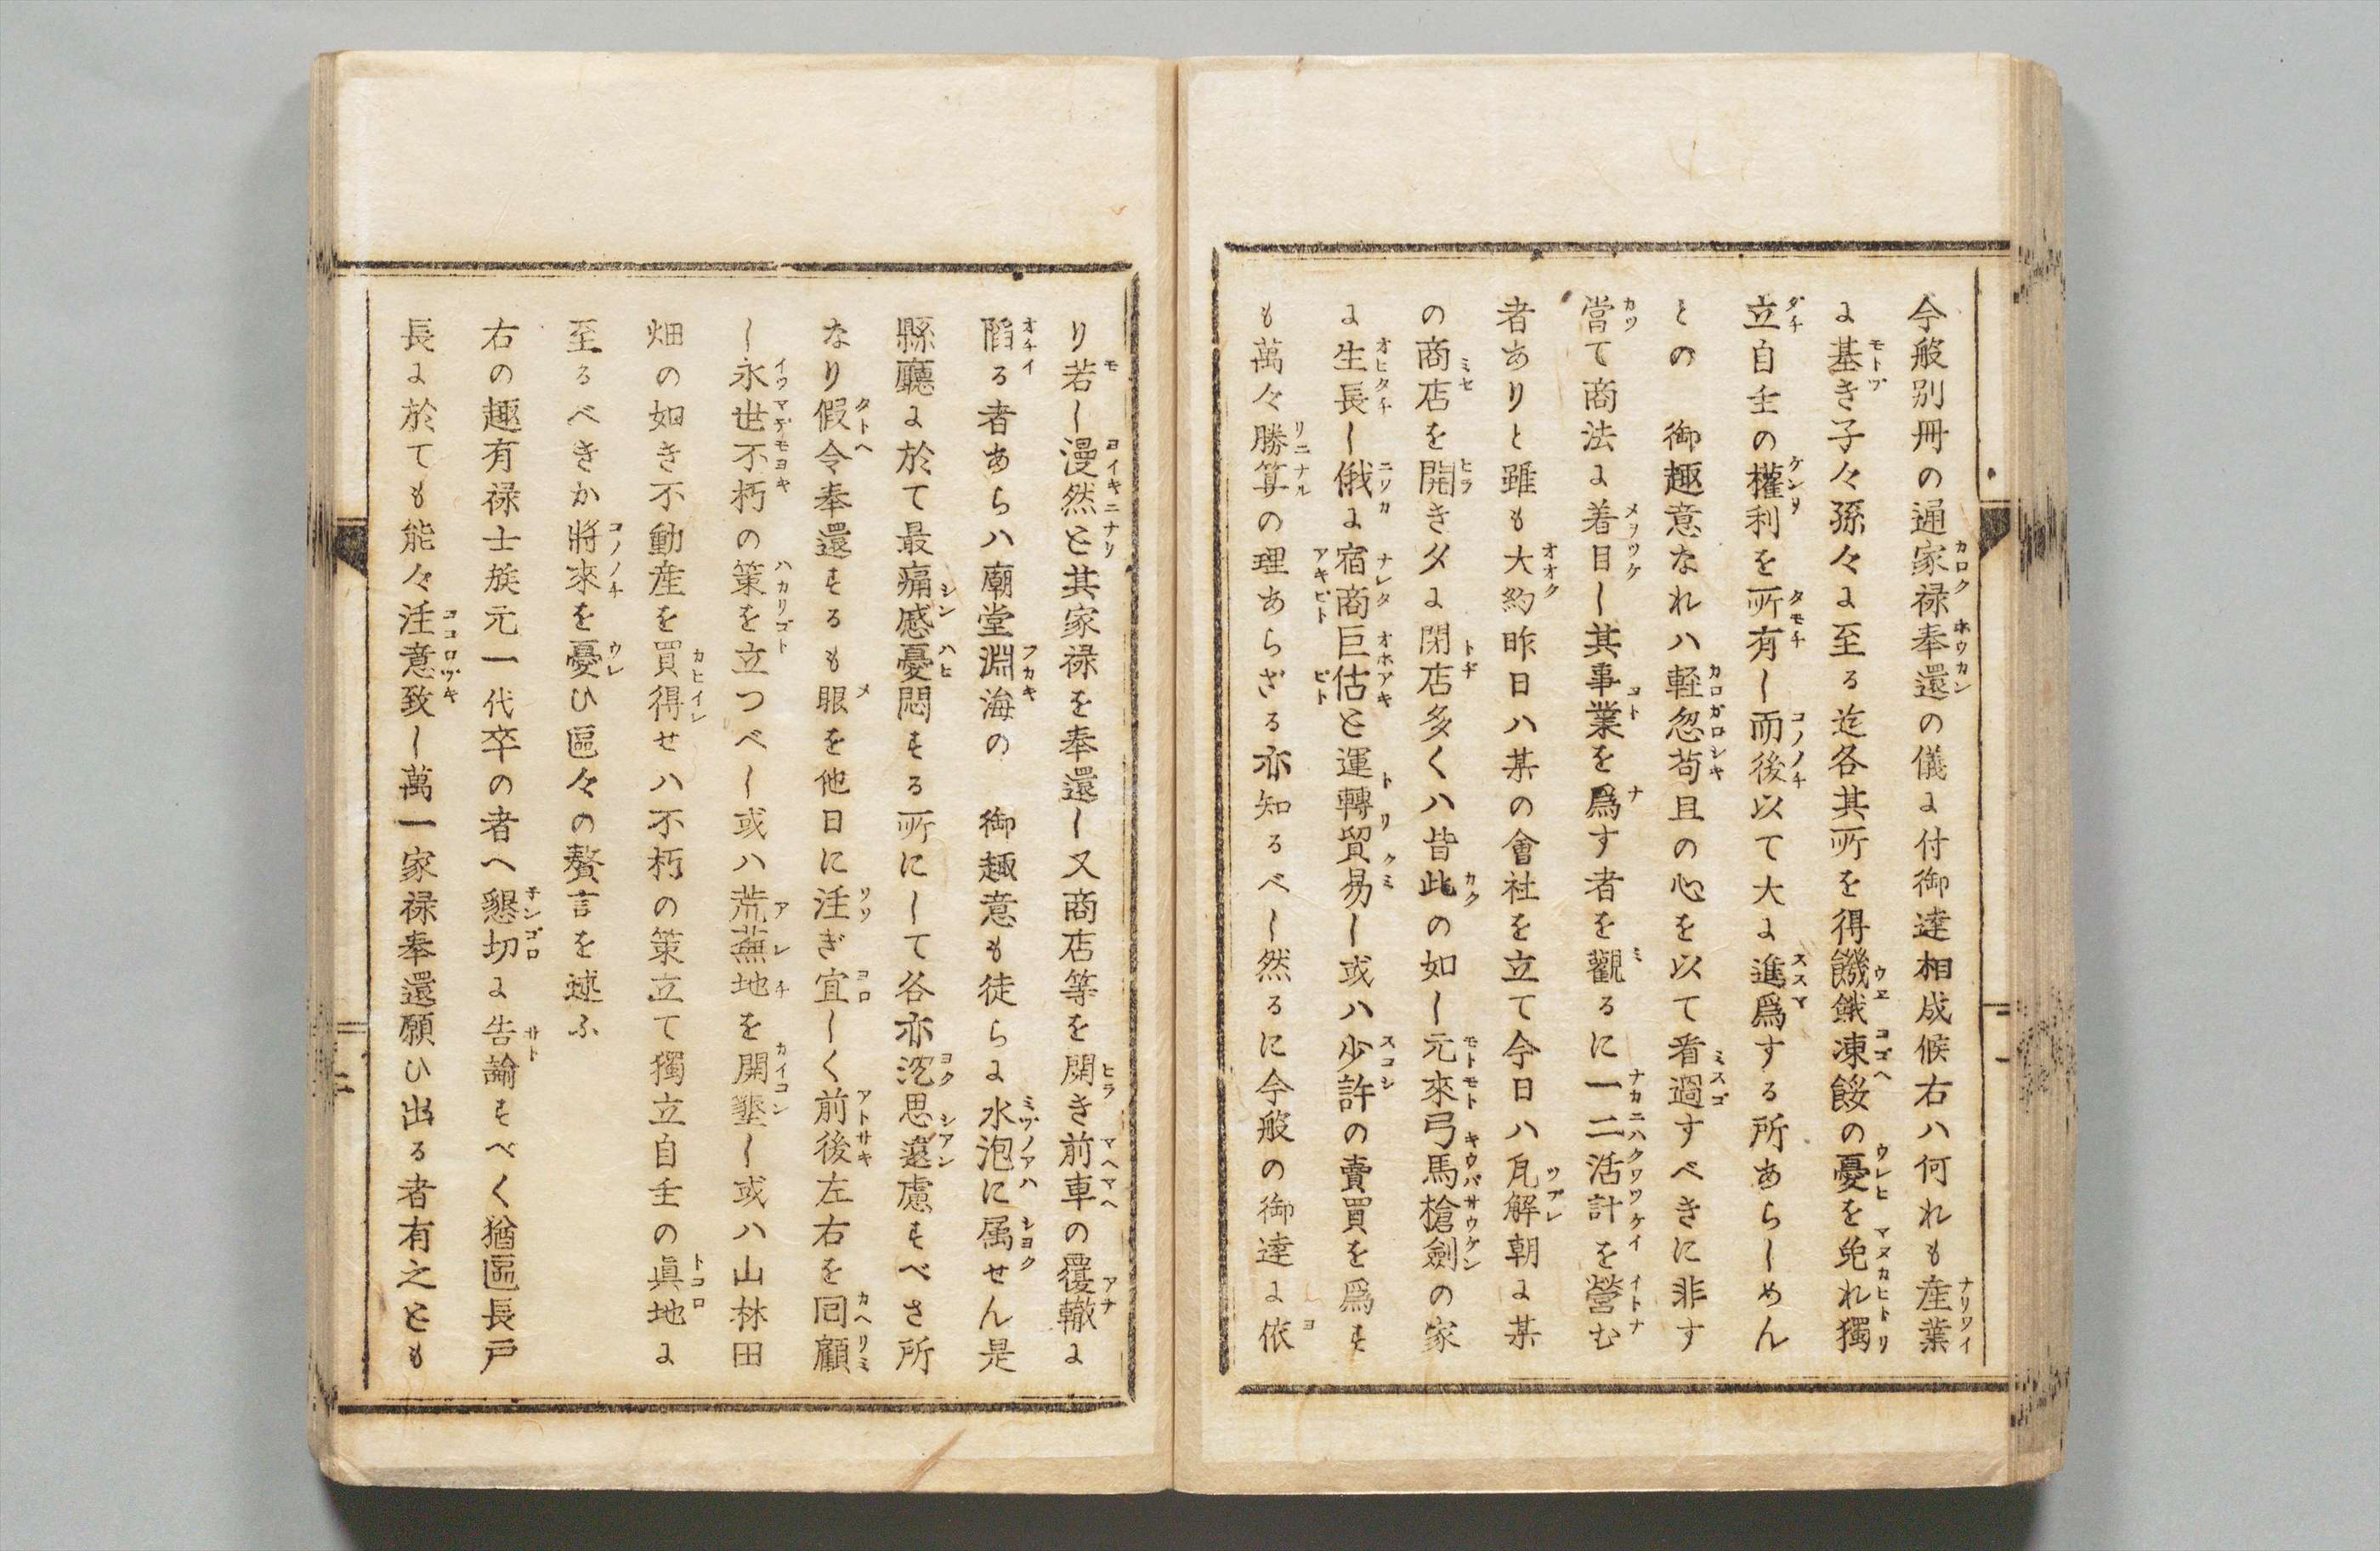 今般別冊の通家禄奉還の儀に付御達相成候右ハ何れも産業
に基き子々孫々に至る迄各其所を得饑餓凍餒の憂を免れ獨
立自主の權利を所有し而後以て大に進爲する所あらしめん
との　御趣意なれハ軽忽苟且の心を以て看過すべきに非す
嘗て商法に着目し其事業を爲す者を觀るに一二活計を營む
者ありと雖も大約昨日ハ某の會社を立て今日ハ瓦解朝に某
の商店を開き夕に閉店多くハ皆此の如し元來弓馬槍劍の家
に生長し俄に宿商巨估と運轉貿易し或ハ少許の賣買を爲す
も萬々勝算の理あらざる亦知るべし然るに今般の御達に依
り若し漫然と其家禄を奉還し又商店等を開き前車の覆轍に
陷る者あらハ廟堂淵海の　御趣意も徒らに水泡に属せん是
縣廳に於て最痛慼憂悶する所にして各亦沈思遠慮すべき所
なり假令奉還するも眼を他日に注ぎ宜しく前後左右を囘顧
し永世不朽の策を立つべし或ハ荒蕪地を開墾し或ハ山林田
畑の如き不動産を買得せハ不朽の策立て獨立自主の眞地に
至るべきか將來を憂ひ區々の贅言を述ふ
右の趣有禄士族元一代卒の者へ懇切に告諭すべく猶區長戸
長に於ても能々注意致し萬一家禄奉還願ひ出る者有之とも